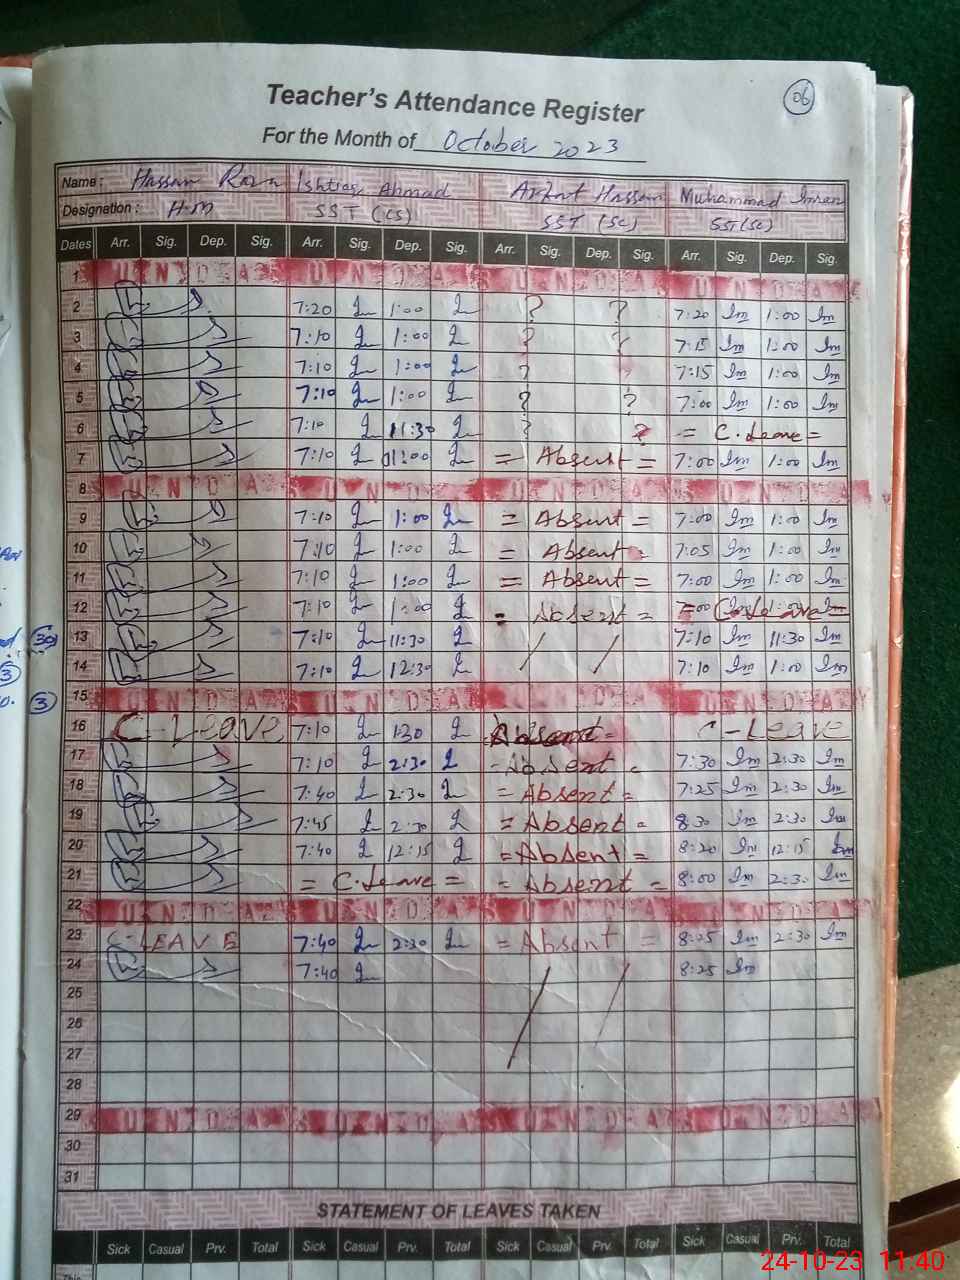 06
Teacher's Attendance Register
For the Month of October 2023
Name: Hassan Raza Ishtiaq Ahmad Arfat Hassan Muhammad Imran
Designation: H.M SST (CS) SST (SC) SST (SC)
Dates Arr. Sig. Dep. Sig. Arr. Sig. Dep. Sig. Arr. Sig. Dep. Sig. Arr. Sig. Dep. Sig.
1 SUNDAY SUNDAY SUNDAY SUNDAY
2 7:20 1:00 ? ? 7:20 Im 1:00 Im
3 7:10 1:00 ? ? 7:15 Im 1:00 Im
4 7:10 1:00 ? ? 7:15 Im 1:00 Im
5 7:10 1:00 ? ? 7:00 Im 1:00 Im
6 7:10 11:30 ? ? = C.Leave =
7 7:10 01:00 = Absent = 7:00 Im 1:00 Im
8 SUNDAY SUNDAY SUNDAY SUNDAY
9 7:10 1:00 = Absent = 7:00 Im 1:00 Im
10 7:10 1:00 = Absent = 7:05 Im 1:00 Im
11 7:10 1:00 = Absent = 7:00 Im 1:00 Im
12 7:10 1:00 = Absent = C.Leave
13 7:10 11:30 / / 7:10 Im 11:30 Im
14 7:10 12:30 7:10 Im 1:00 Im
15 SUNDAY SUNDAY SUNDAY SUNDAY
16 C-LEAVE 7:10 1:30 Absent = C-LEAVE
17 7:10 2:30 - Absent = 7:30 Im 2:30 Im
18 7:40 2:30 = Absent = 7:25 Im 2:30 Im
19 7:45 2:30 = Absent = 8:30 Im 2:30 Im
20 7:40 12:15 = Absent = 8:20 Im 12:15 Im
21 = C.Leave = = Absent = 8:00 Im 2:30 Im
22 SUNDAY SUNDAY SUNDAY SUNDAY
23 C-LEAVE 7:40 2:30 = Absent = 8:25 Im 2:30 Im
24 7:40 8:25 Im
25
26
27
28
29 SUNDAY SUNDAY SUNDAY SUNDAY
30
31
STATEMENT OF LEAVES TAKEN
Sick Casual Prv. Total Sick Casual Prv. Total Sick Casual Prv. Total Sick Casual Prv. Total
24-10-23 11:40
30
3
3